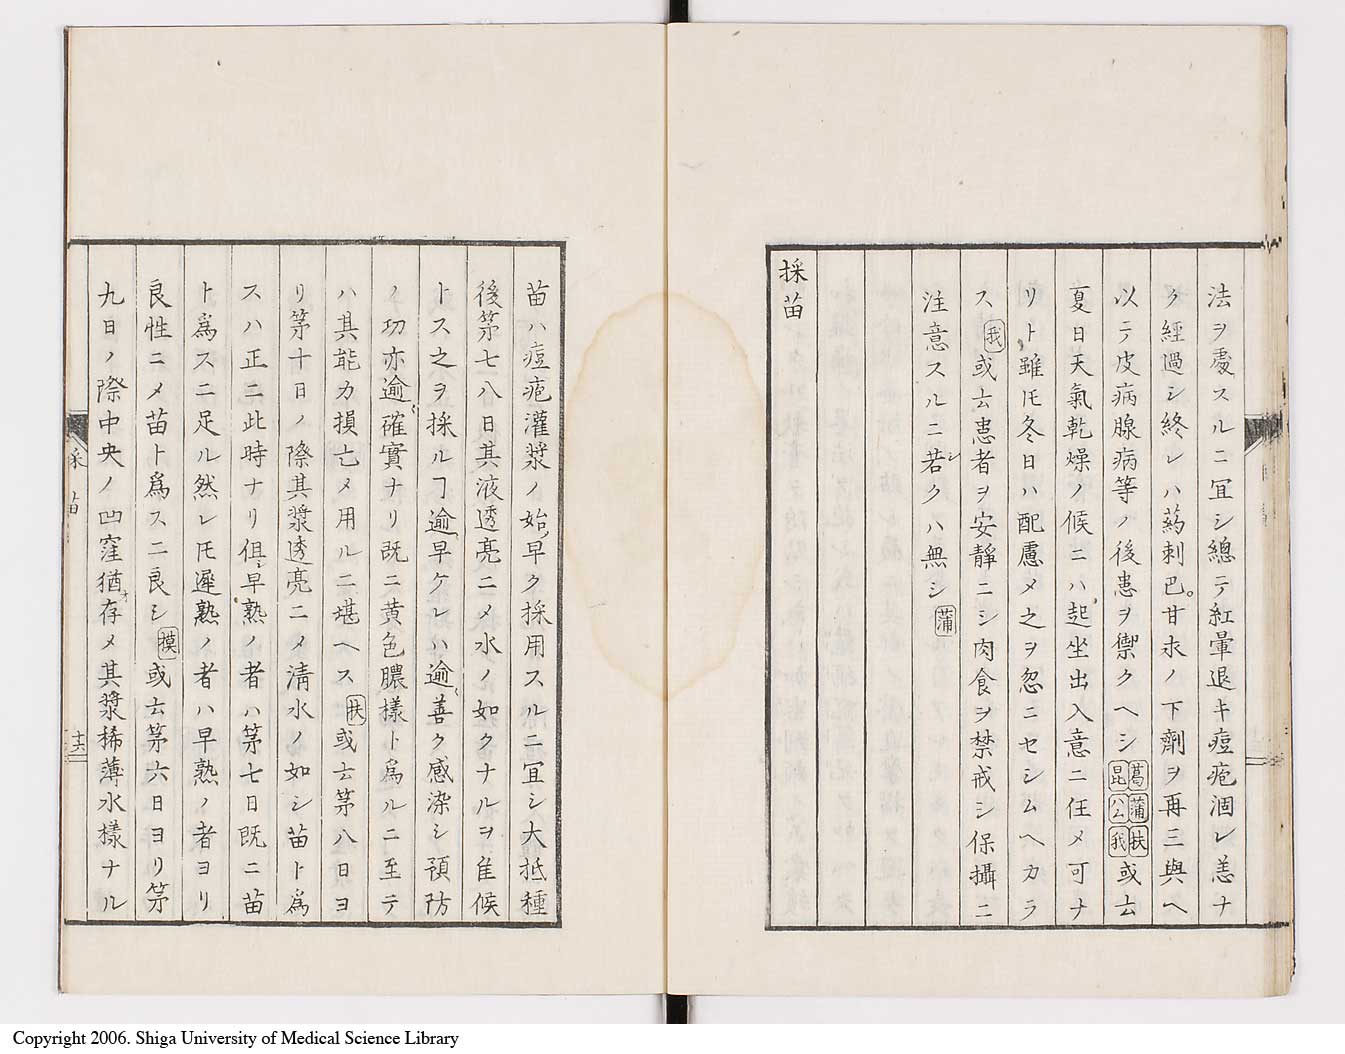 法ヲ處スルニ冝シ總テ紅暈退キ痘疱涸レ恙ナ
ク經過シ終レハ蒳刺巴。甘汞ノ下劑ヲ再三與ヘ
以テ皮病腺病等ノ後患ヲ禦クヘシ葛蒲扶昆ハム我或云
夏日天氣乾燥ノ候ニハ起坐出入意ニ任メ可ナ
リト雖𪜈冬日ハ配慮メ之ヲ忽ニセシムヘカラ
ス我或云患者ヲ安靜ニシ肉食ヲ禁戒シ保攝ニ
注意スルニ若クハ無シ蒲
採苗
苗ハ痘疱灌漿ノ始早ク採用スルニ冝シ大抵種
後第七八日其液透亮ニメ水ノ如クナルヲ隹候
トス之ヲ採ルヿ逾早ケレハ逾善ク感染シ預防
ノ功亦逾確實ナリ既ニ黄色膿樣ト爲ルニ至テ
ハ其能力損亡メ用ルニ堪ヘス扶或云第八日ヨ
リ第十日ノ際其漿透亮ニメ清水ノ如シ苗ト爲
スハ正ニ此時ナリ但早熟ノ者ハ第七日既ニ苗
ト爲スニ足ル然レ𪜈遲熟ノ者ハ早熟ノ者ヨリ
良性ニメ苗ト爲スニ良シ摸或云第六日ヨリ第
九日ノ際中央ノ凹窪猶存メ其漿稀薄水樣ナル
採苗
十六
Copyright 2006. Shiga University of Medical Science Library